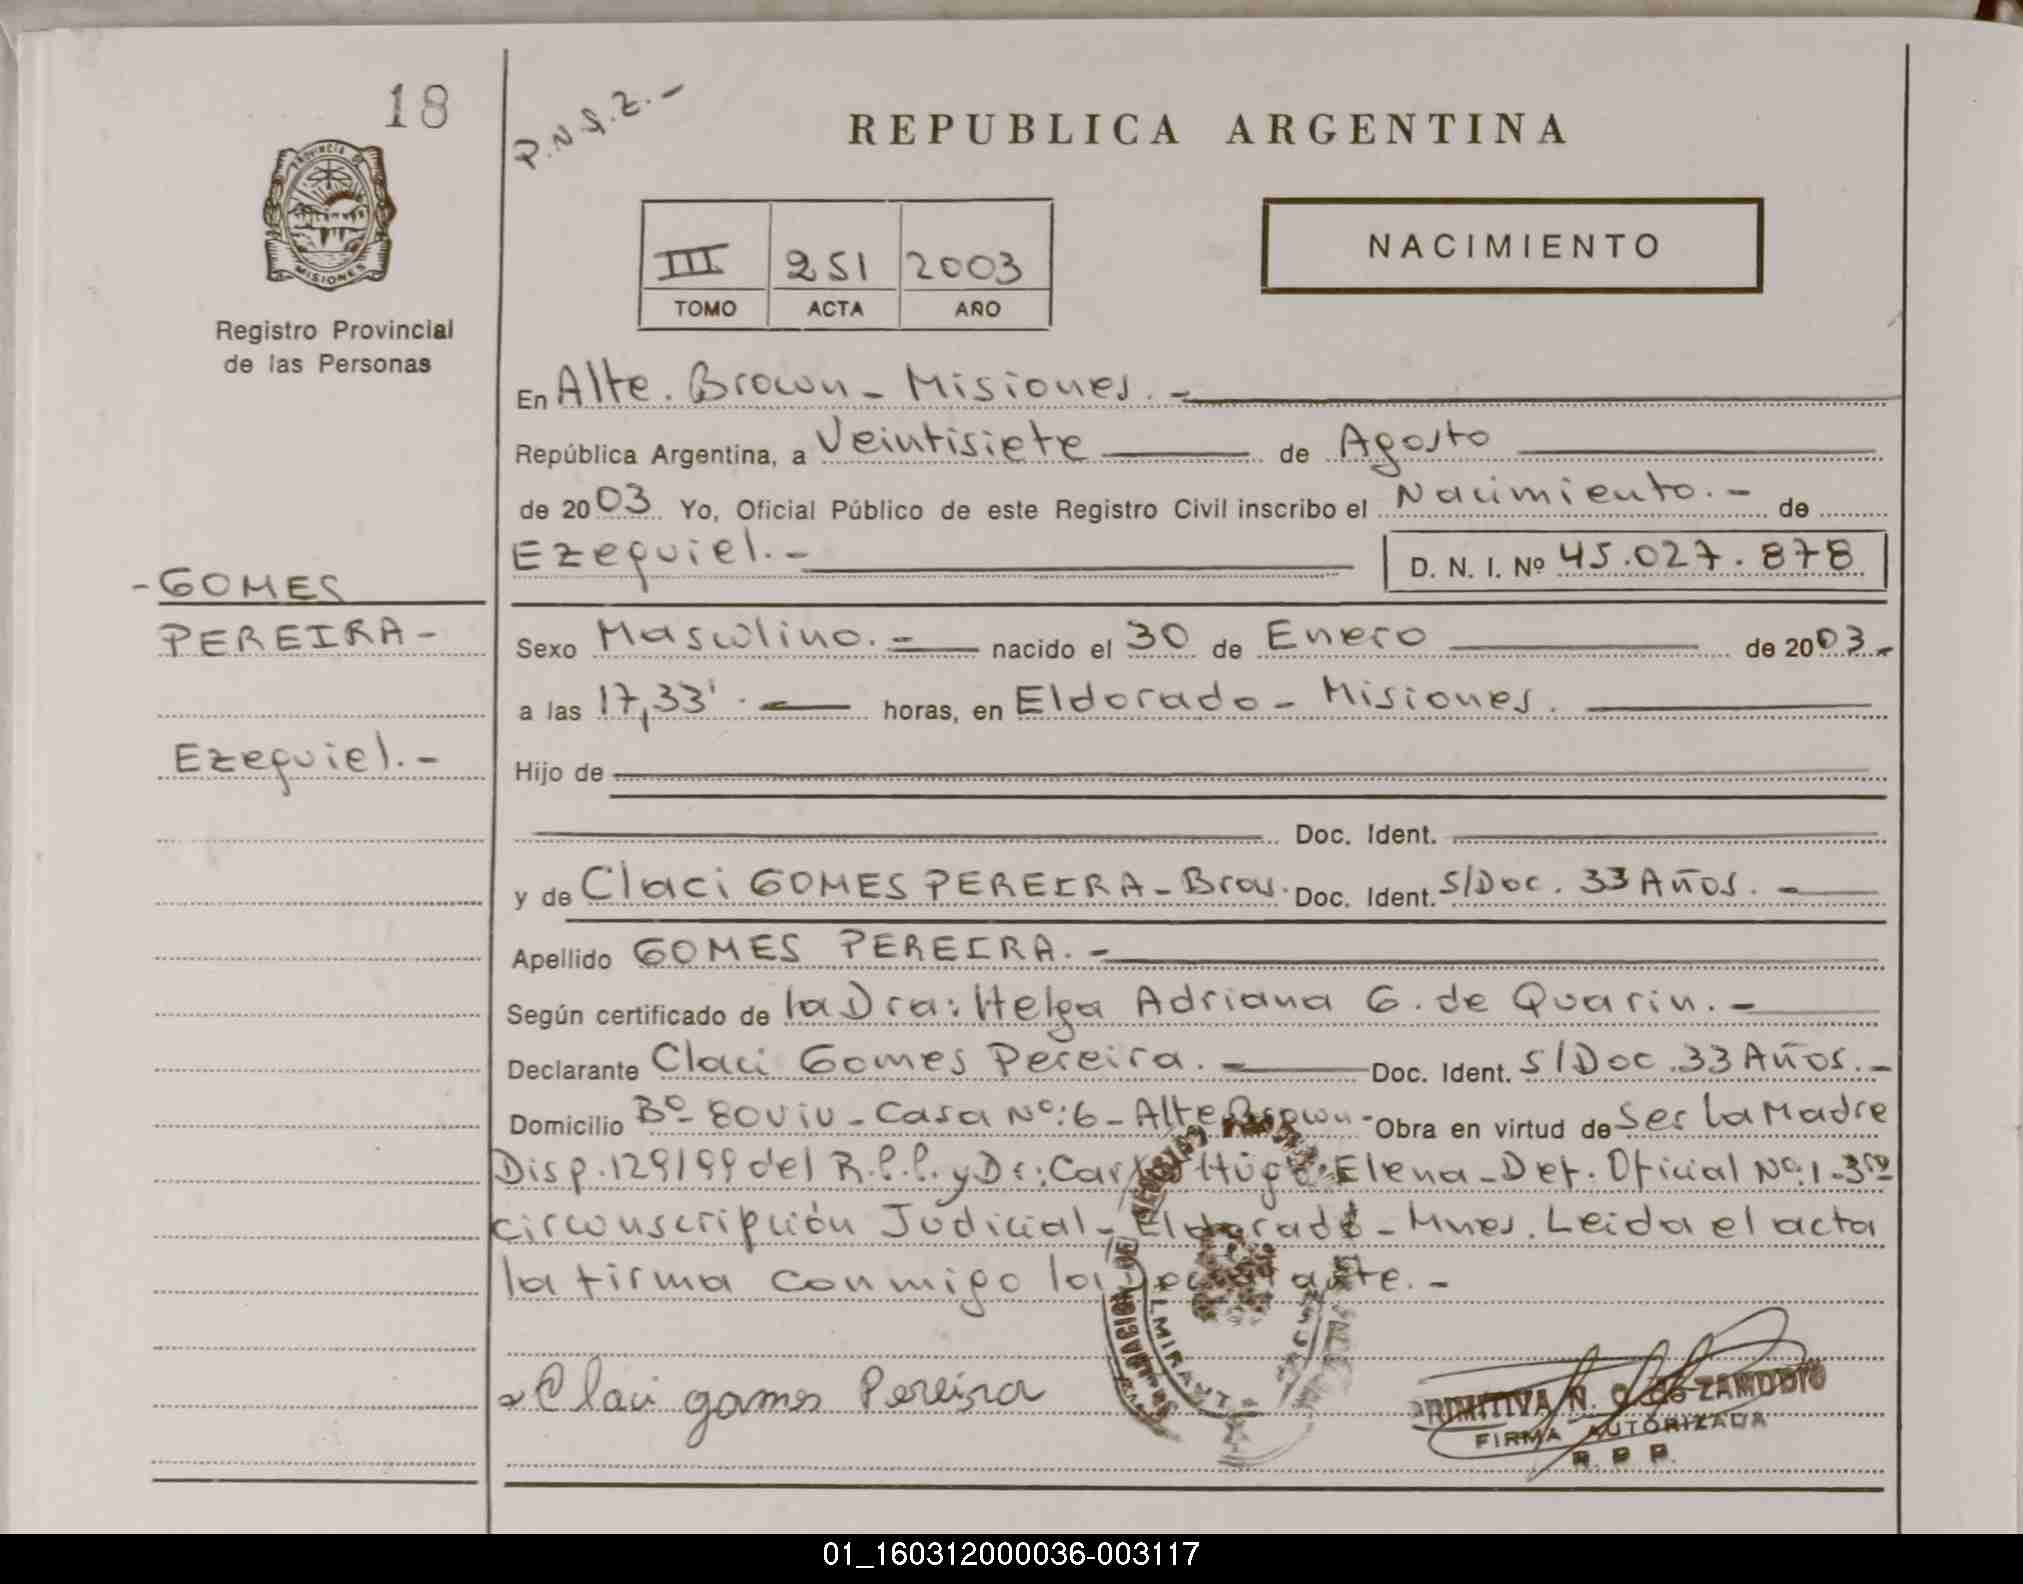 18
P.N.S.Z.-
REPUBLICA ARGENTINA
PROVINCIA DE
MISIONES
Registro Provincial
de las Personas
III 251 2003
TOMO ACTA AÑO
NACIMIENTO
En Alte. Brown - Misiones.-
República Argentina, a Veintisiete de Agosto
de 2003 Yo, Oficial Público de este Registro Civil inscribo el Nacimiento.- de
Ezequiel.- D. N. I. Nº 45.027.878
-GOMES
PEREIRA-
Ezequiel.-
Sexo Masculino.- nacido el 30 de Enero de 2003.-
a las 17,33'.- horas, en Eldorado - Misiones.
Hijo de
Doc. Ident.
y de Claci GOMES PEREIRA - Bras. Doc. Ident. S/Doc. 33 Años.-
Apellido GOMES PEREIRA.-
Según certificado de la Dra: Helga Adriana G. de Quarin.-
Declarante Claci Gomes Pereira.- Doc. Ident. S/Doc. 33 Años.-
Domicilio Bº 80 Viv - Casa Nº: 6 - Alte Brown - Obra en virtud de Ser la Madre
Disp. 129/99 del R.P.P. y Dr: Carlos Hugo Elena - Def. Oficial Nº: 1 - 3ra
circunscripción Judicial - Eldorado - Mnes. Leida el acta
la firma conmigo la declarante.-
Claci gomes Pereira
PRIMITIVA N. DE ZAMUDIO
FIRMA AUTORIZADA
R. P. P.
01_160312000036-003117